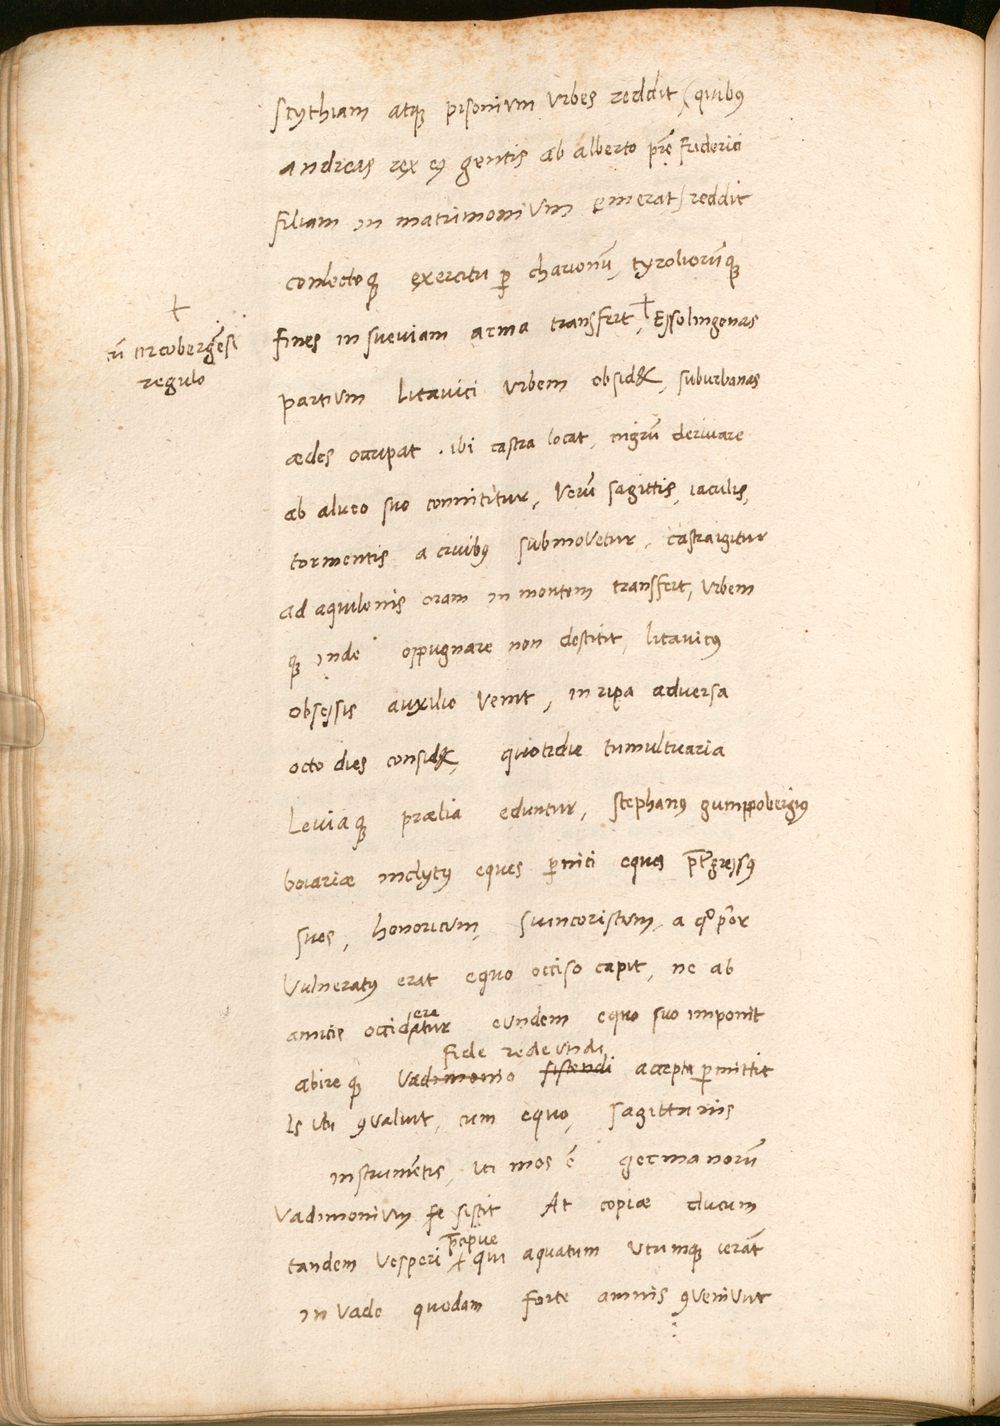 scythiam atqꝫ pisonium urbes reddit (quibꝰ
andreas rex eꝰ gentis ab alberto pr̄e Friderici
filiam in matrimonium emerat) reddit
conlectoqꝫ exercitu ꝑ charionū, tyroliorūqꝫ
fines in sueviam arma transfert,┼ Essolingenas
┼
cū circobergēsi
regulo
partium litavici urbem obsid&, suburbanas
ædes occupat. ibi castra locat, nigrū derivare
ab alveo suo connititur, Verū sagittis, iaculis,
tormentis a civibꝰ submovetur, castra igitur
ad aquilonis oram in montem transfert, urbem
qꝫ inde oppugnare non destitit, litavicꝰ
obsessis auxilio venit, in ripa adversa
octo dies consid&, quotidie tumultuaria
Leviaqꝫ prælia eduntur, stephanꝰ gumppobergiꝰ
boiariæ inclytꝰ eques ꝑnici equo p̄tgressꝰ
suos, honoricum, a quo prior
Vulneratꝰ erat equo occiso capit, ne ab
amicis occideretur eundem equo suo imponit
abireqꝫ Vadimonio sistendi fide redeundi accepta ꝑmittit
Is ubi ꝯvaluit, cum equo, sagittariis
instrumētis, uti mos ē germanorū
Vadimonium se sistit At copiæ ducum
tandem Vesperi p̄cipue qui aquatum utrumqꝫ ierāt
in Vado quodam forte amnis ꝯveniunt